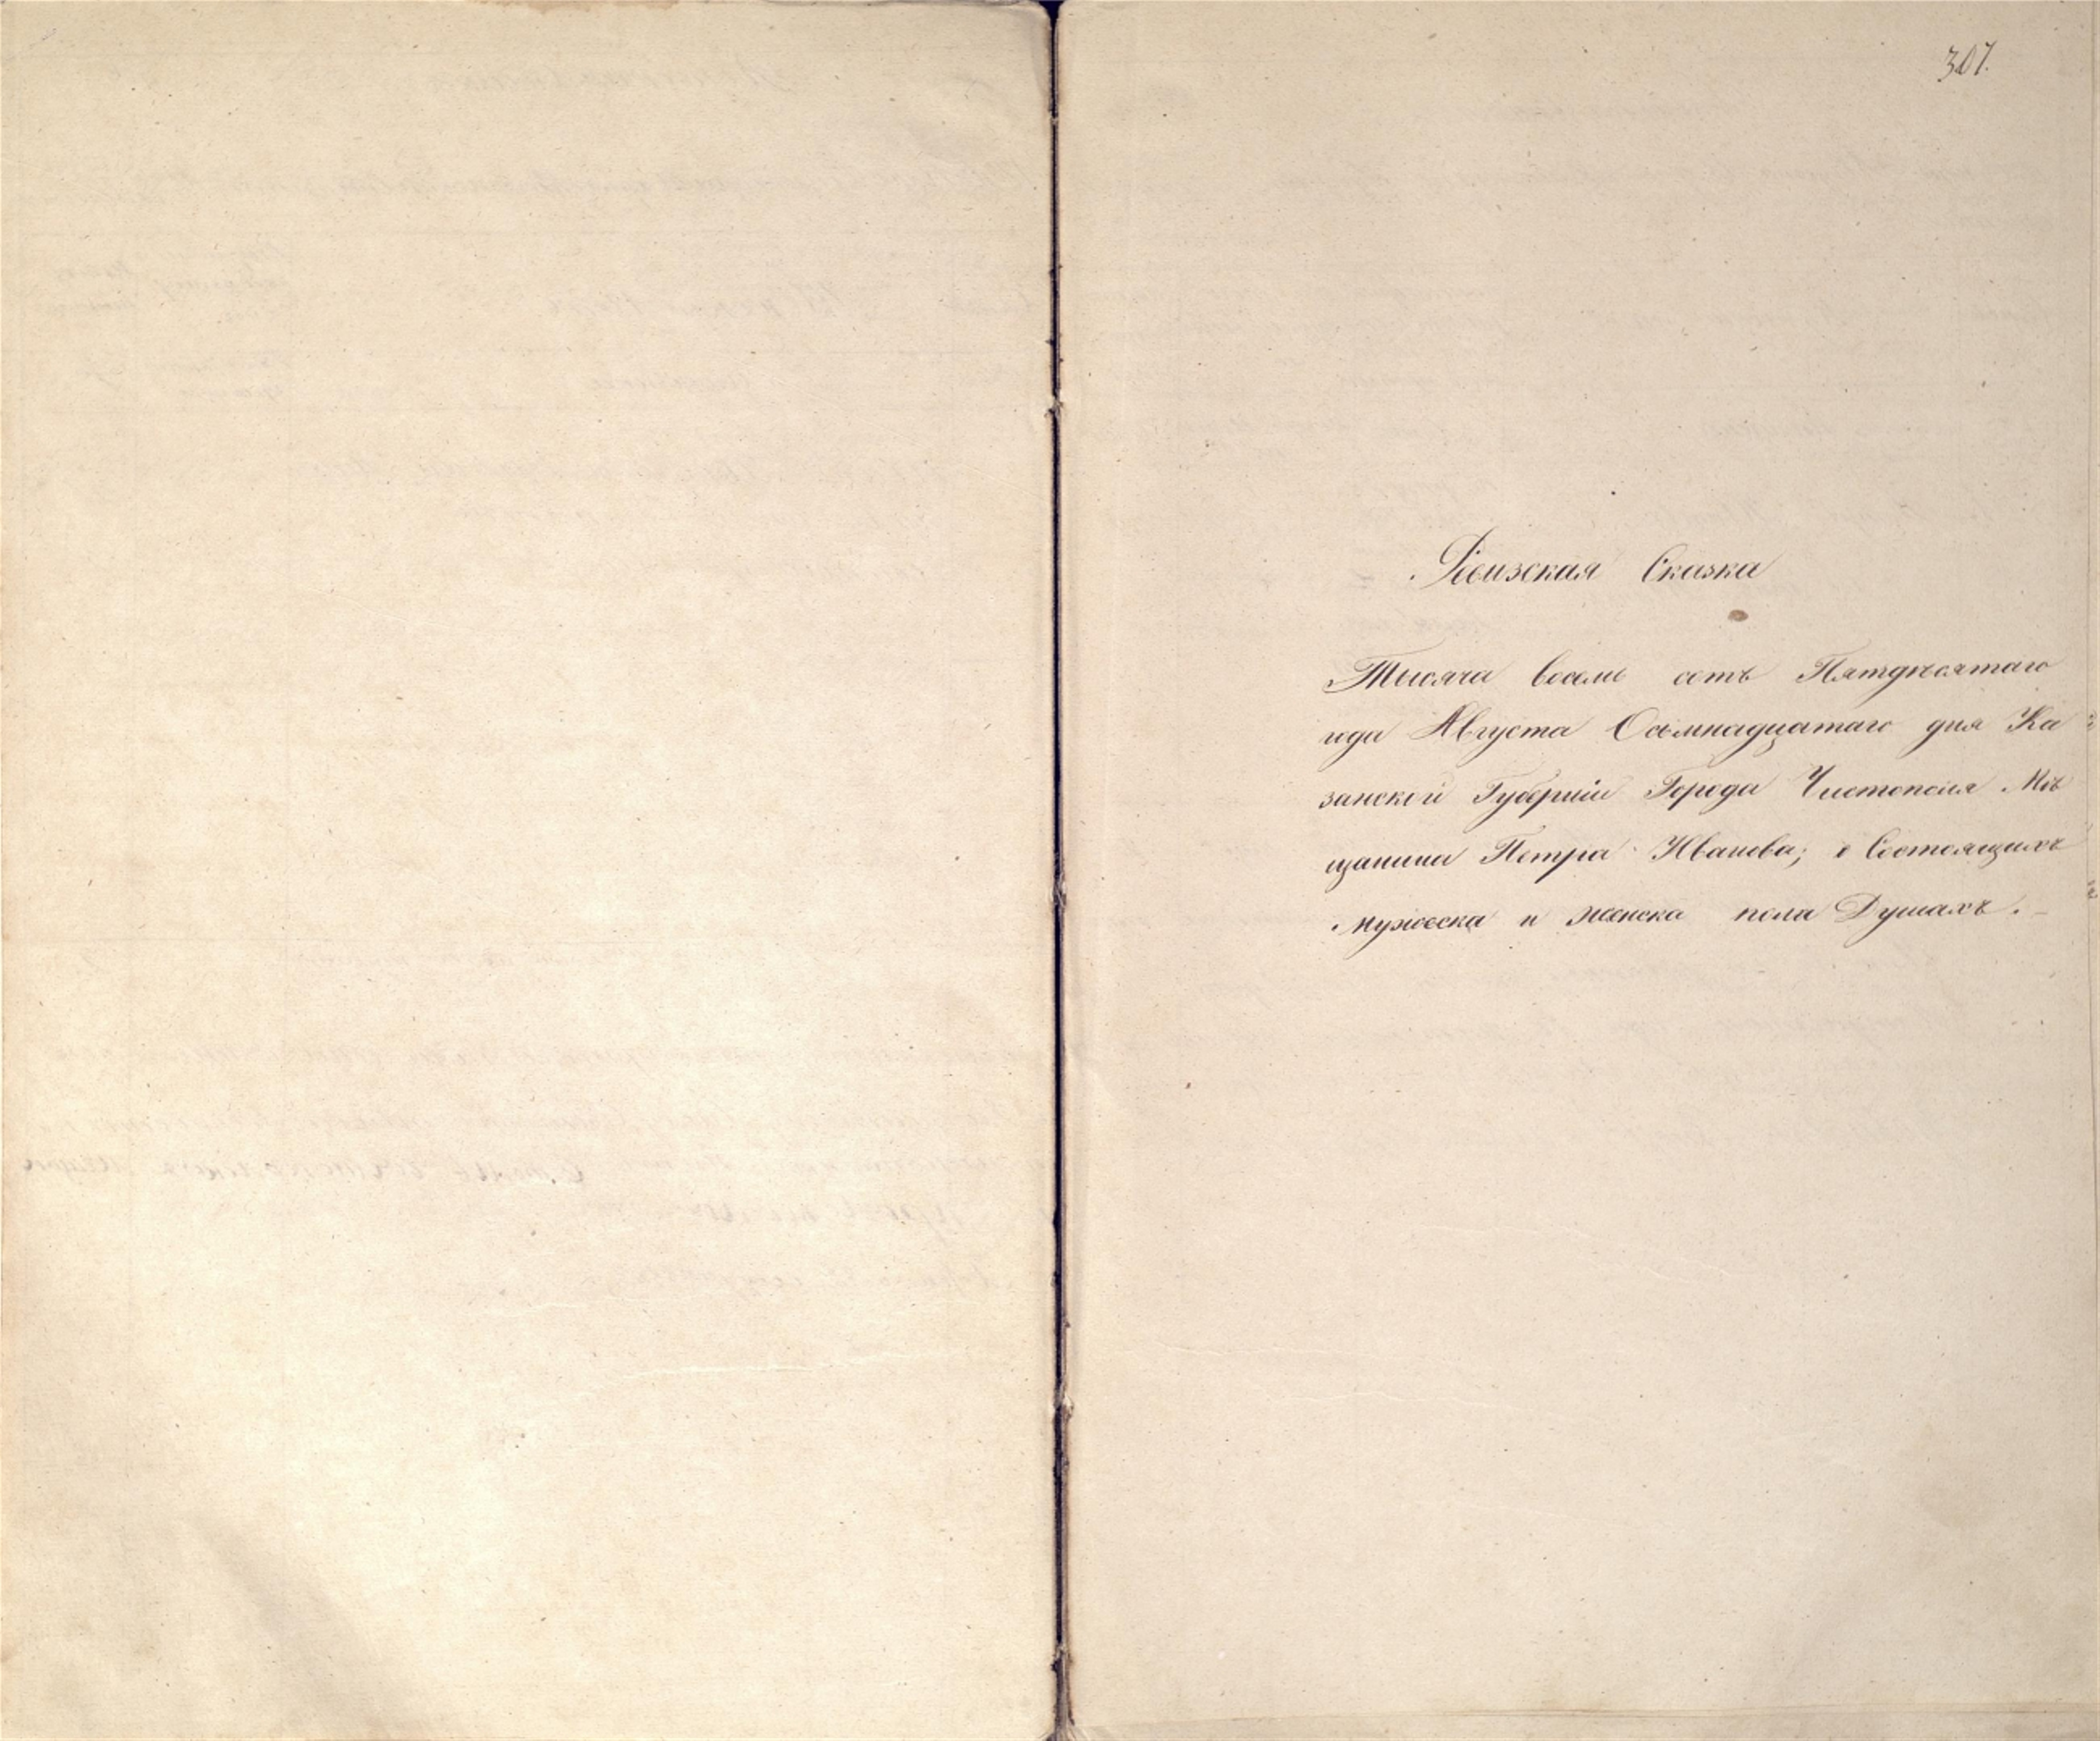 307.
Ревизская Сказка
Тысяча восемь сотъ Пятдесятаго
года Августа Осьмнадцатаго дня Ка
занской Губерніи Города Чистополя Мѣ
щанина Петра Иванова; о Состоящихъ
мужеска и женска пола Душахъ.